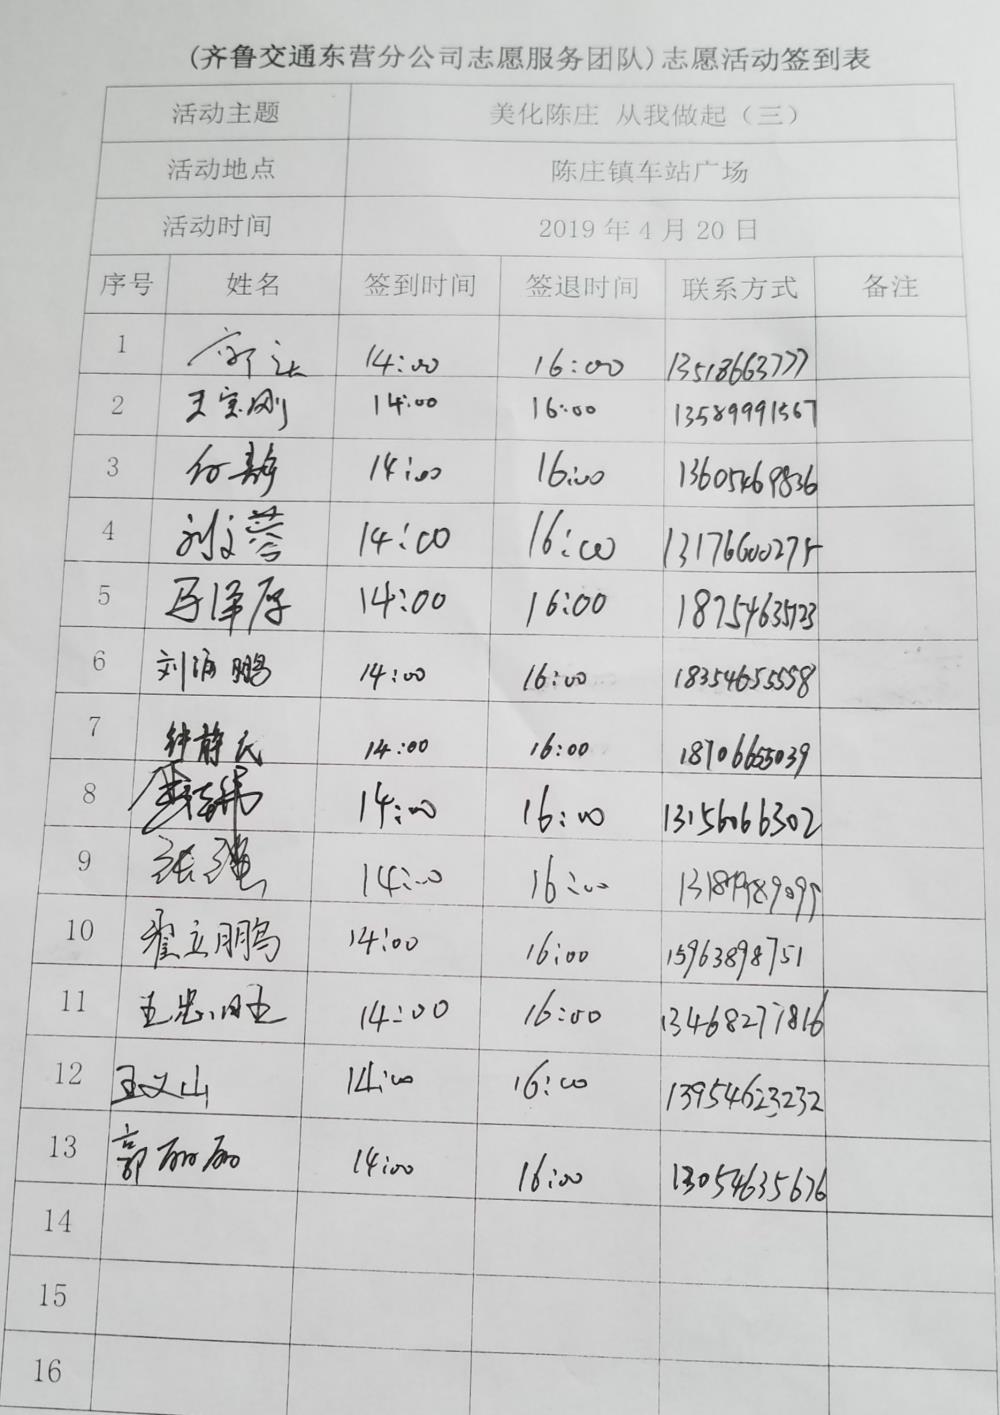 (齐鲁交通东营分公司志愿服务团队)志愿活动签到表
活动主题 美化陈庄 从我做起（三）
活动地点 陈庄镇车站广场
活动时间 2019年4月20日
序号 姓名 签到时间 签退时间 联系方式 备注
1 14:00 16:00 13518663777
2 王宝刚 14:00 16:00 13589991567
3 付静 14:00 16:00 13605469836
4 刘文蓉 14:00 16:00 13176600275
5 马泽厚 14:00 16:00 18754635123
6 刘海鹏 14:00 16:00 18354655558
7 钟静民 14:00 16:00 18706655039
8 14:00 16:00 13156066302
9 张强 14:00 16:00
10 翟立鹏 14:00 16:00 15963898751
11 王忠旺 14:00 16:00 13468271816
12 王义山 14:00 16:00 13954623232
13 郭丽丽 14:00 16:00 13054635676
14
15
16